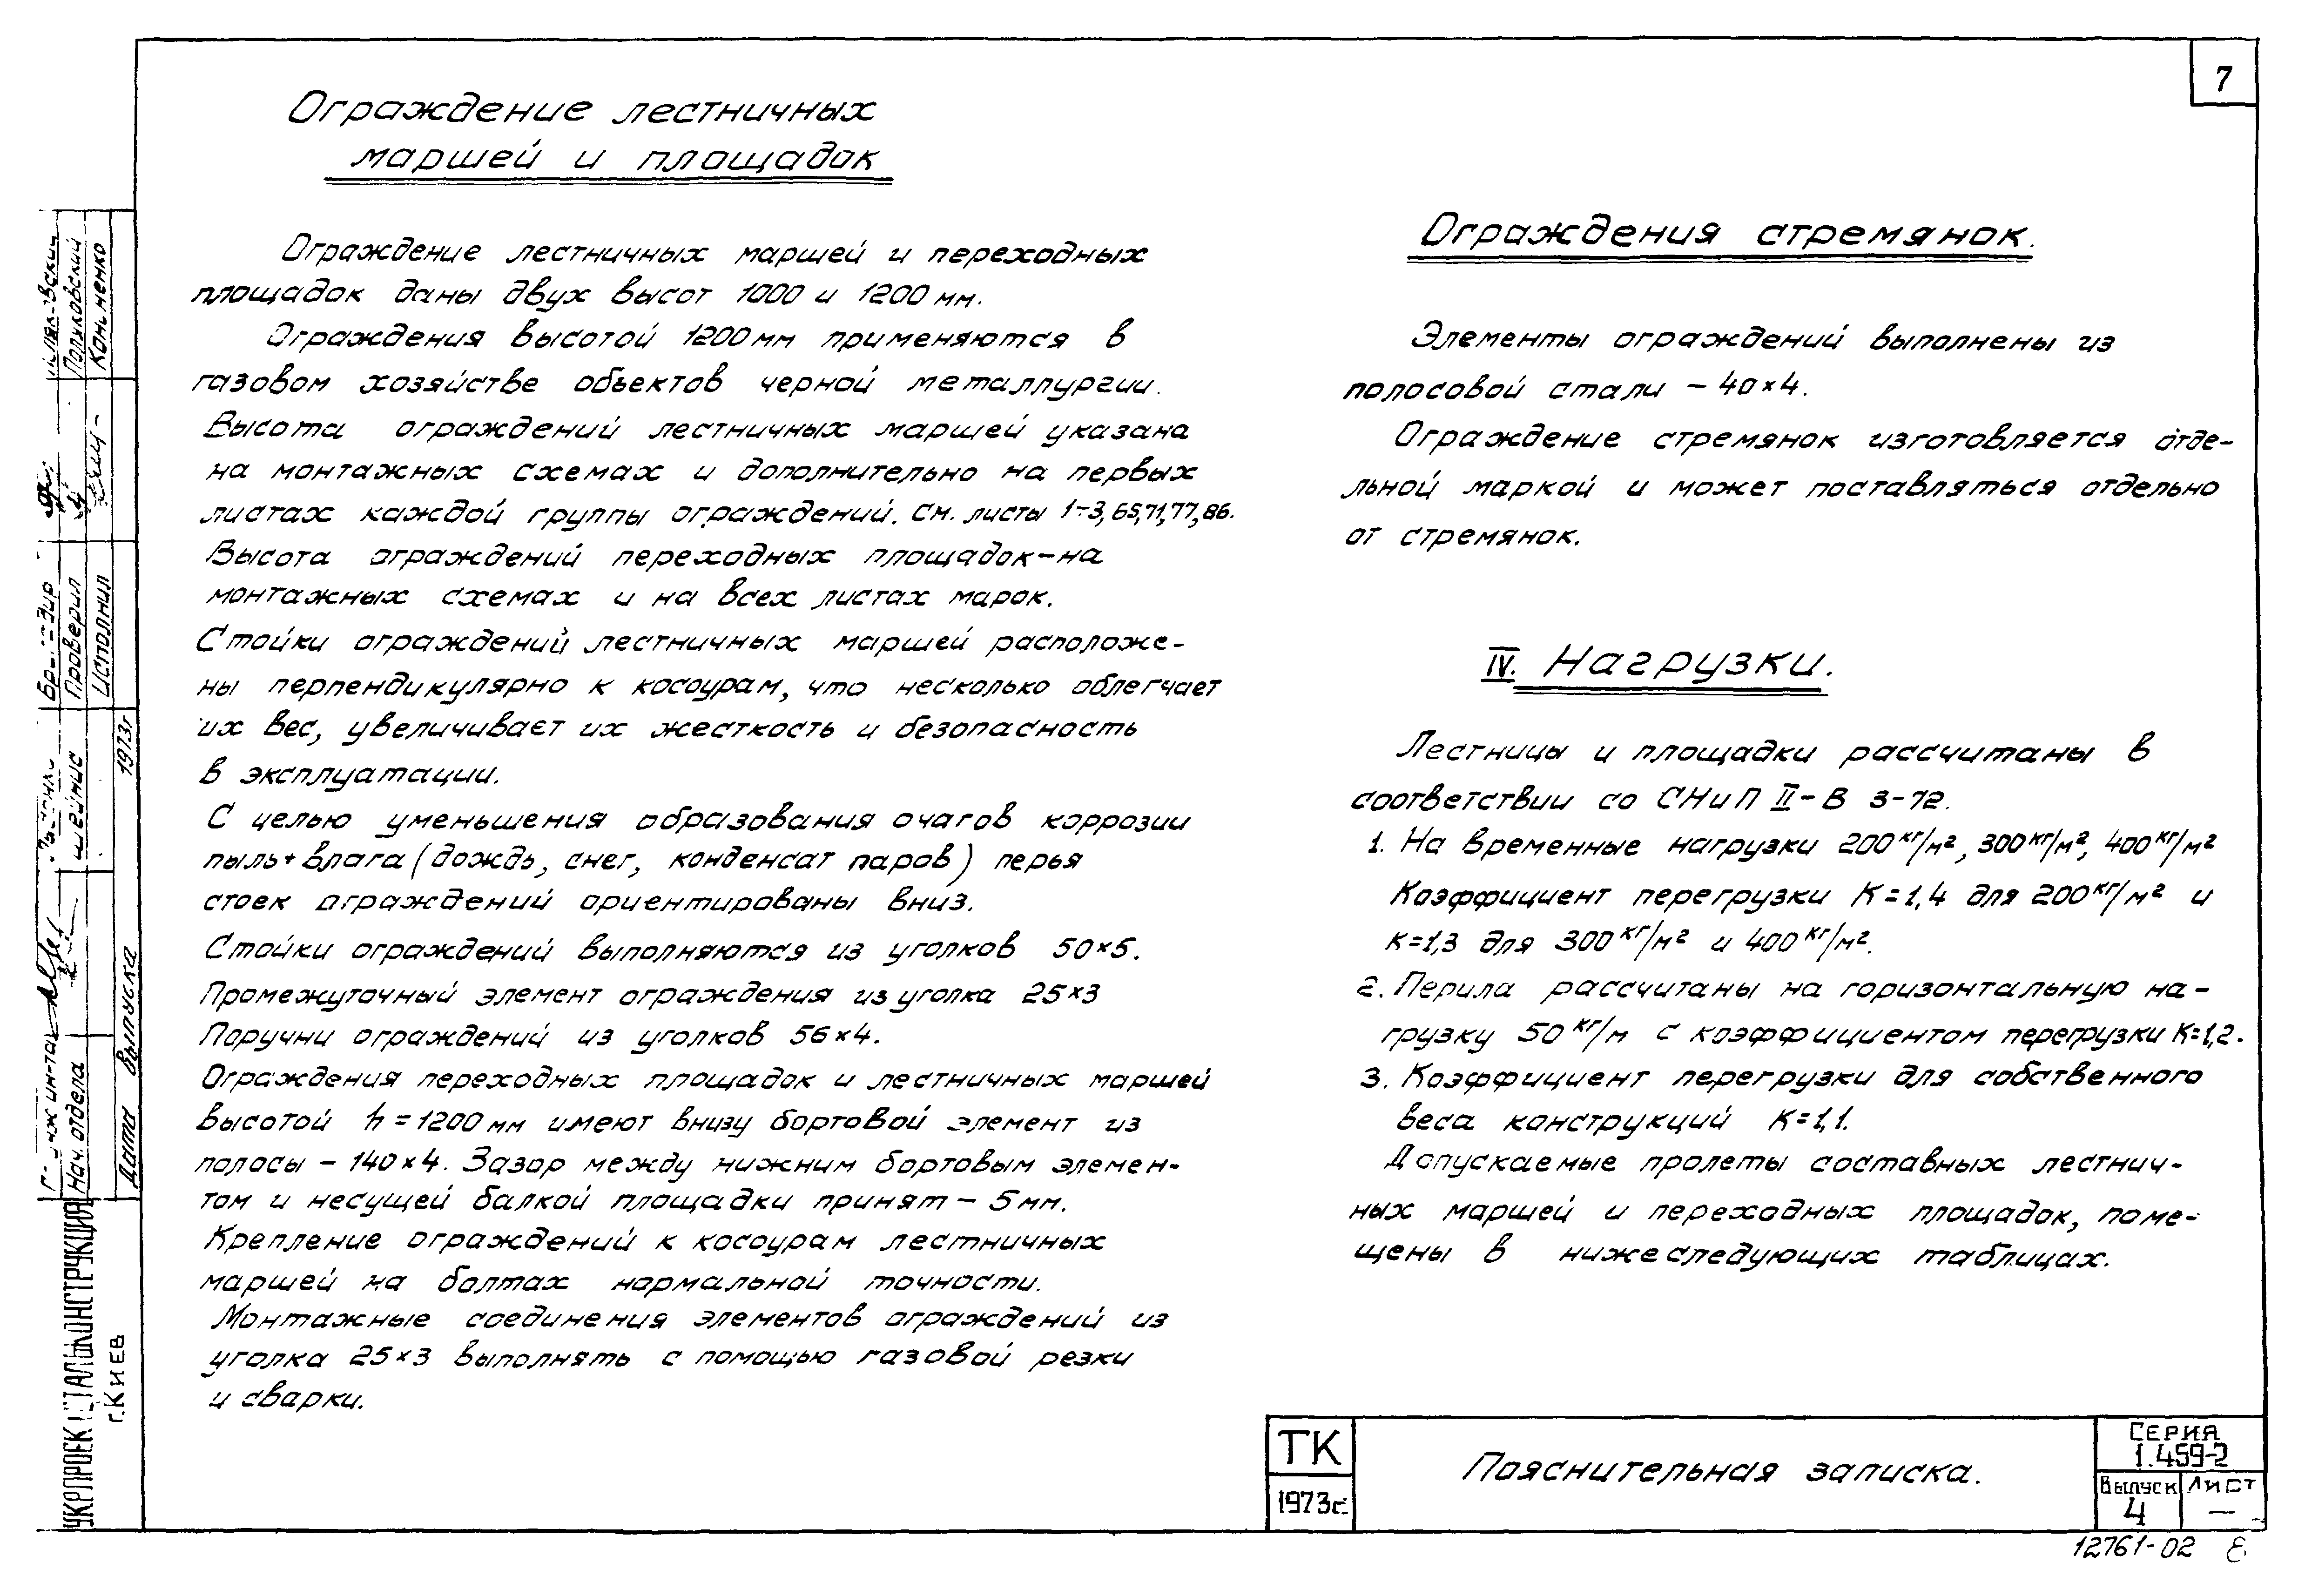 7
Ограждение лестничных
маршей и площадок
Ограждение лестничных маршей и переходных
площадок даны двух высот 1000 и 1200 мм.
Ограждения высотой 1200 мм применяются в
газовом хозяйстве объектов черной металлургии.
Высота ограждений лестничных маршей указана
на монтажных схемах и дополнительно на первых
листах каждой группы ограждений. см. листы 1÷3, 65, 71, 77, 86.
Высота ограждений переходных площадок-на
монтажных схемах и на всех листах марок.
Стойки ограждений лестничных маршей расположе-
ны перпендикулярно к косоурам, что несколько облегчает
их вес, увеличивает их жесткость и безопасность
в эксплуатации.
С целью уменьшения образования очагов коррозии
пыль+влага (дождь, снег, конденсат паров) перья
стоек ограждений ориентированы вниз.
Стойки ограждений выполняются из уголков 50×5.
Промежуточный элемент ограждения из уголка 25×3
Поручни ограждений из уголков 56×4.
Ограждения переходных площадок и лестничных маршей
высотой h=1200 мм имеют внизу бортовой элемент из
полосы – 140×4. Зазор между нижним бортовым элемен-
том и несущей балкой площадки принят – 5 мм.
Крепление ограждений к косоурам лестничных
маршей на болтах нормальной точности.
Монтажные соединения элементов ограждений из
уголка 25×3 выполнять с помощью газовой резки
и сварки.
Ограждения стремянок.
Элементы ограждений выполнены из
полосовой стали – 40×4.
Ограждение стремянок изготовляется отде-
льной маркой и может поставляться отдельно
от стремянок.
IV. Нагрузки.
Лестницы и площадки рассчитаны в
соответствии со СНиП II-В 3-72.
1. На временные нагрузки 200 кг/м², 300 кг/м², 400 кг/м²
Коэффициент перегрузки К=1,4 для 200 кг/м² и
К=1,3 для 300 кг/м² и 400 кг/м².
2. Перила рассчитаны на горизонтальную на-
грузку 50 кг/м с коэффициентом перегрузки К=1,2.
3. Коэффициент перегрузки для собственного
веса конструкций К=1,1.
Допускаемые пролеты составных лестнич-
ных маршей и переходных площадок, поме-
щены в нижеследующих таблицах.
ТК
1973г.
Пояснительная записка.
Серия
1.459-2
Выпуск
4
Лист
—
12761-02 8
УКРПРОЕКТСТАЛЬКОНСТРУКЦИЯ
г. Киев
Нач. отдела
Шеймис
Проверил
Поляковский
Исполнил
Дата выпуска 1973г